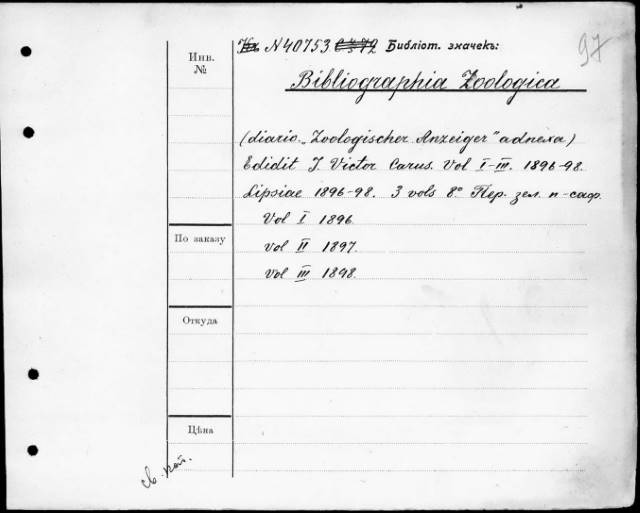 Инв.
№
N40753 Библіот. значекъ:
97
Bibliographia Zoologica
(diario „Zoologischer Anzeiger" adnexa)
Edidit J. Victor Carus. Vol I-III. 1896-98.
Lipsiae 1896-98. 3 vols 8° Пер. зел. п-саф.
Vol I 1896.
Vol II 1897.
Vol III 1898.
По заказу
Откуда
Цѣна
св. кат.